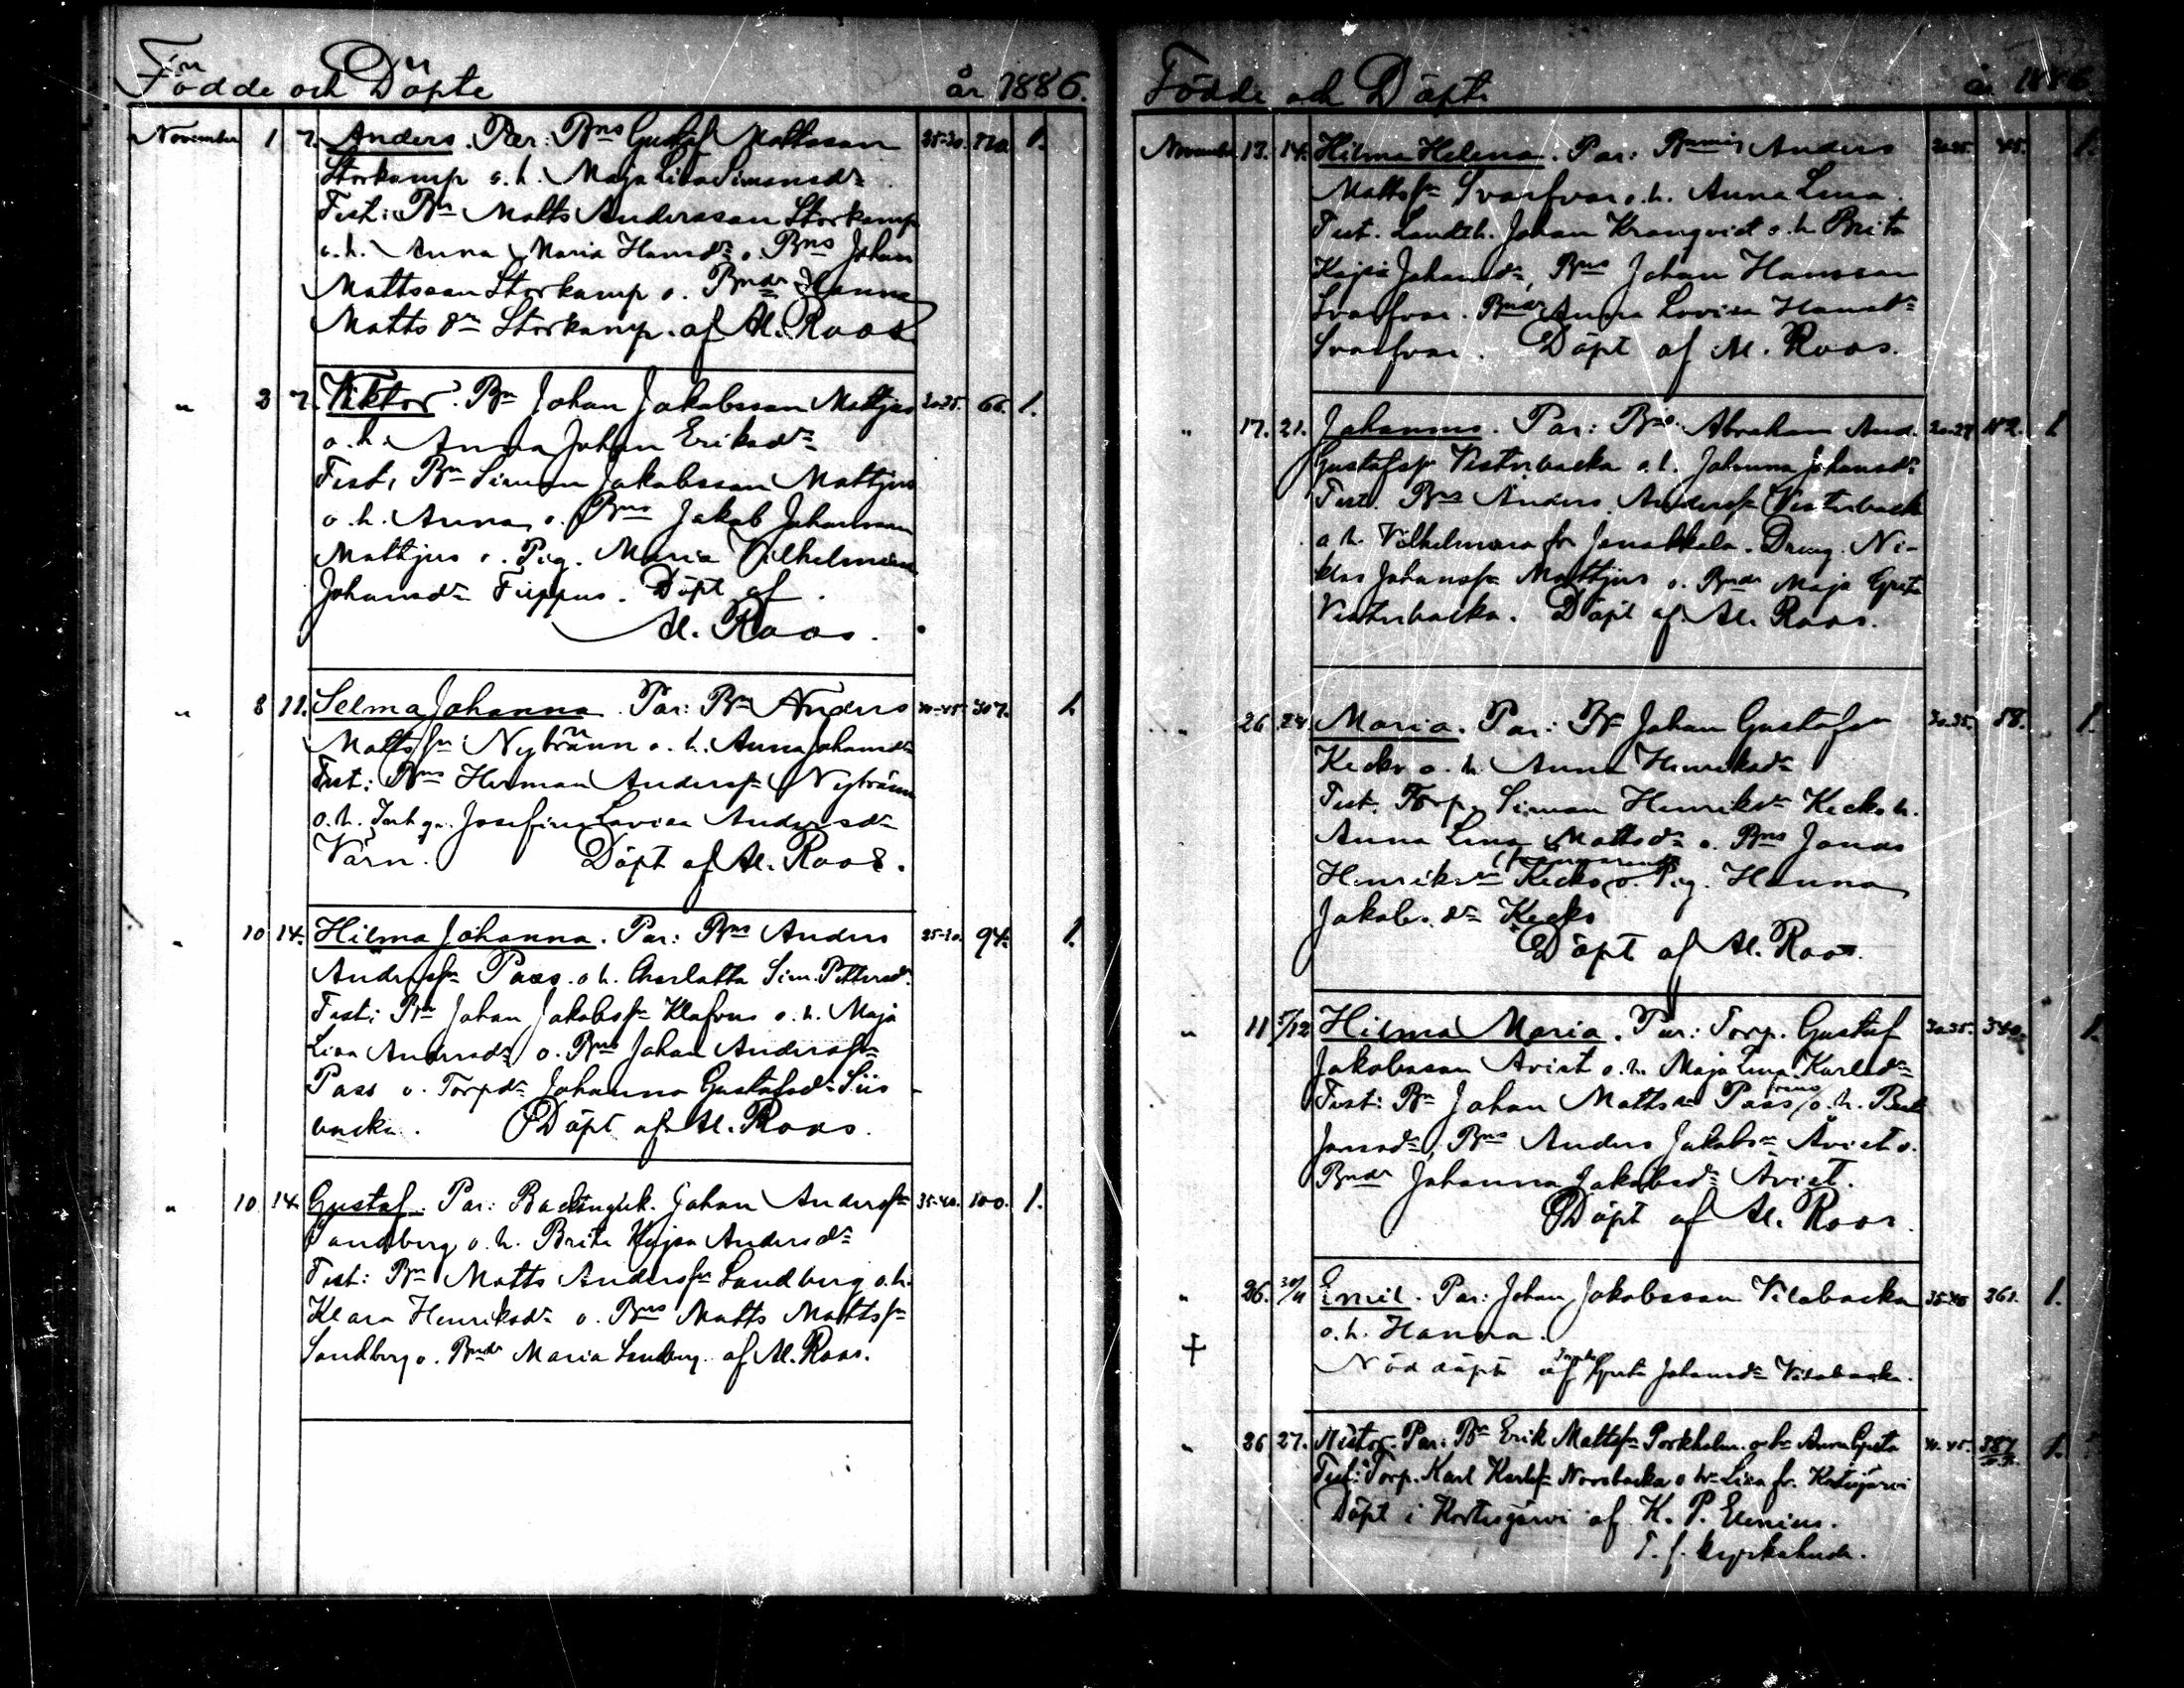 Födde och Döpte år 1886.
November 1 7. Anders. Par: Bns Gustaf Mattsson 25-30. 1.
Storkamp o. h. Maja Lisa Simonsdr
Test: Bn Matts Andersson Storkamp
o. h. Anna Maria Hansdr o. Bns Johan
Mattsson Storkamp o. Bndr Hanna
Mattsdr Storkamp. af Al. Roos
" 3 7. Viktor. Bn Johan Jakobsson Mattjus 66. 1.
o. h. Anna Johan Eriksdr
Test, Bn Simon Jakobsson Mattjus
o. h. Anna, o. Bns Jakob Johansson
Mattjus o. Pig. Maria Vilhelmina
Johansdr Fiippus. Döpt af
Al. Roos.
" 8 11. Selma Johanna. Par: Bn Anders 40-45 307. 1
Mattssn Nybränn o. h. Anna Johansdr
Test: Bns Herman Anderssn Nybränn
o. h. Josefina Lovisa Andersdr
Värn. Döpt af Al. Roos.
" 10 14. Hilma Johanna. Par: Bns Anders 25-30. 94. 1.
Anderssn Pass. o h. Charlotta Sim. Pettersdr.
Test: Bn Johan Jakobssn Klafvus o. h. Maja
Lisa Andersdr o. Bns Johan Anderssn
Pass o. Torpdr Johanna Gustafsdr Siis-
backa. Döpt af Al. Roos.
" 10. 14. Gustaf. Par: Johan Anderssn 35-40. 100. 1.
Sandberg o. h. Brita Kajsa Andersdr
Test: Bn Matts Anderssn Sandberg o. h.
Klara Henriksdr o. Bns Matts Mattssn
Sandberg o. Bndr Maria Sandberg. af Al. Roos.
Födde och Döpte år 1886.
November 13. 14. Hilma Helena. Par: Anders 45. 1.
Mattssn Svarfvar o. h. Anna Lena.
Test. Landth. Johan Kranqvist o. h. Brita
Kajsa Johansdr, Bns Johan Hansson
Svarfvar. Bndr Anna Lovisa Hansdr
Svarfvar. Döpt af Al. Roos.
" 17. 21. Johannes. Par: Bns Abraham And. 1
Gustafssn Vesterbacka o. h. Johanna Johansdr
Test. Bns Anders Anderssn Vesterback
o. h. Vilhelmina fr Janakkala. Dreng. Ni-
klas Johanssn Mattjus o. Bndr Maja Greta
Vesterbacka. Döpt af Al. Roos.
" 26. 28. Maria. Par: Bn Johan Gustafsn 30-35. 58. 1.
Kecko o. h. Anna Henriksdr
Test. Torp. Simon Henriksn Kecko h.
Anna Lena Mattsdr o. Bns Jonas
Henriksn Kecko o. Pig. Hanna
Jakobsdr Kecko
Döpt af Al. Roos.
" 11 5/12 Hilma Maria. Par: Torp. Gustaf 30-35. 340. 1.
Jakobsson Avist o. h. Maja Lena Karlsdr
Test: Bn Johan Mattsn Pass o. h.
Jonsdr, Bns Anders Jakobsn Åvist o.
Bndr Johanna Jakobsdr Avist.
Döpt af Al. Roos.
" 26. 30/11 Emil. Par: Johan Jakobsson Vilobacka 361. 1.
o. h. Hanna.
† Nöddöpt af Greta Johansdr Vilobacka.
" 26 27. Nestor. Par: Bn Erik Mattssn Porkholm o. h. Anna Greta 40-45. 387 1.
Test: Torp. Karl Karlssn Norrbacka o h. Lisa fr. Kortesjärvi
Döpt i Kortesjärvi af K. P. Elenius.
T. f. kyrkoherde.